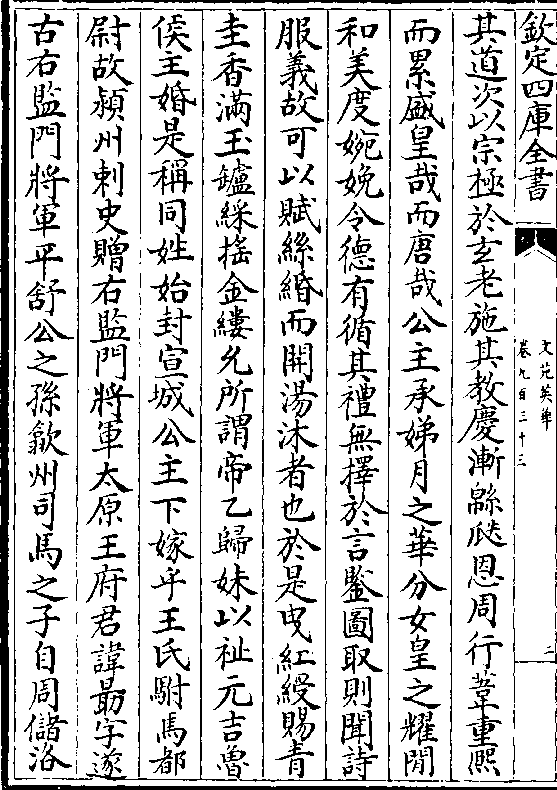 欽定四庫全書
文苑英華
卷九百三十三
三
其道次以宗極於玄老施其教慶漸緜瓞恩周行葦重熙
而累盛皇哉而唐哉公主承娣月之華分女皇之耀閒
和美度婉娩令德有循其禮無擇於言鑒圖取則聞詩
服義故可以賦絲緍而開湯沐者也於是曳紅綬賜青
圭香滿玉罏綵揺金縷允所謂帝乙歸妹以祉元吉魯
侯主婚是稱同姓始封宣城公主下嫁乎王氏駙馬都
尉故潁州刺史贈右監門將軍太原王府君諱勗字遂
古右監門將軍平舒公之孫歙州司馬之子自周儲洛